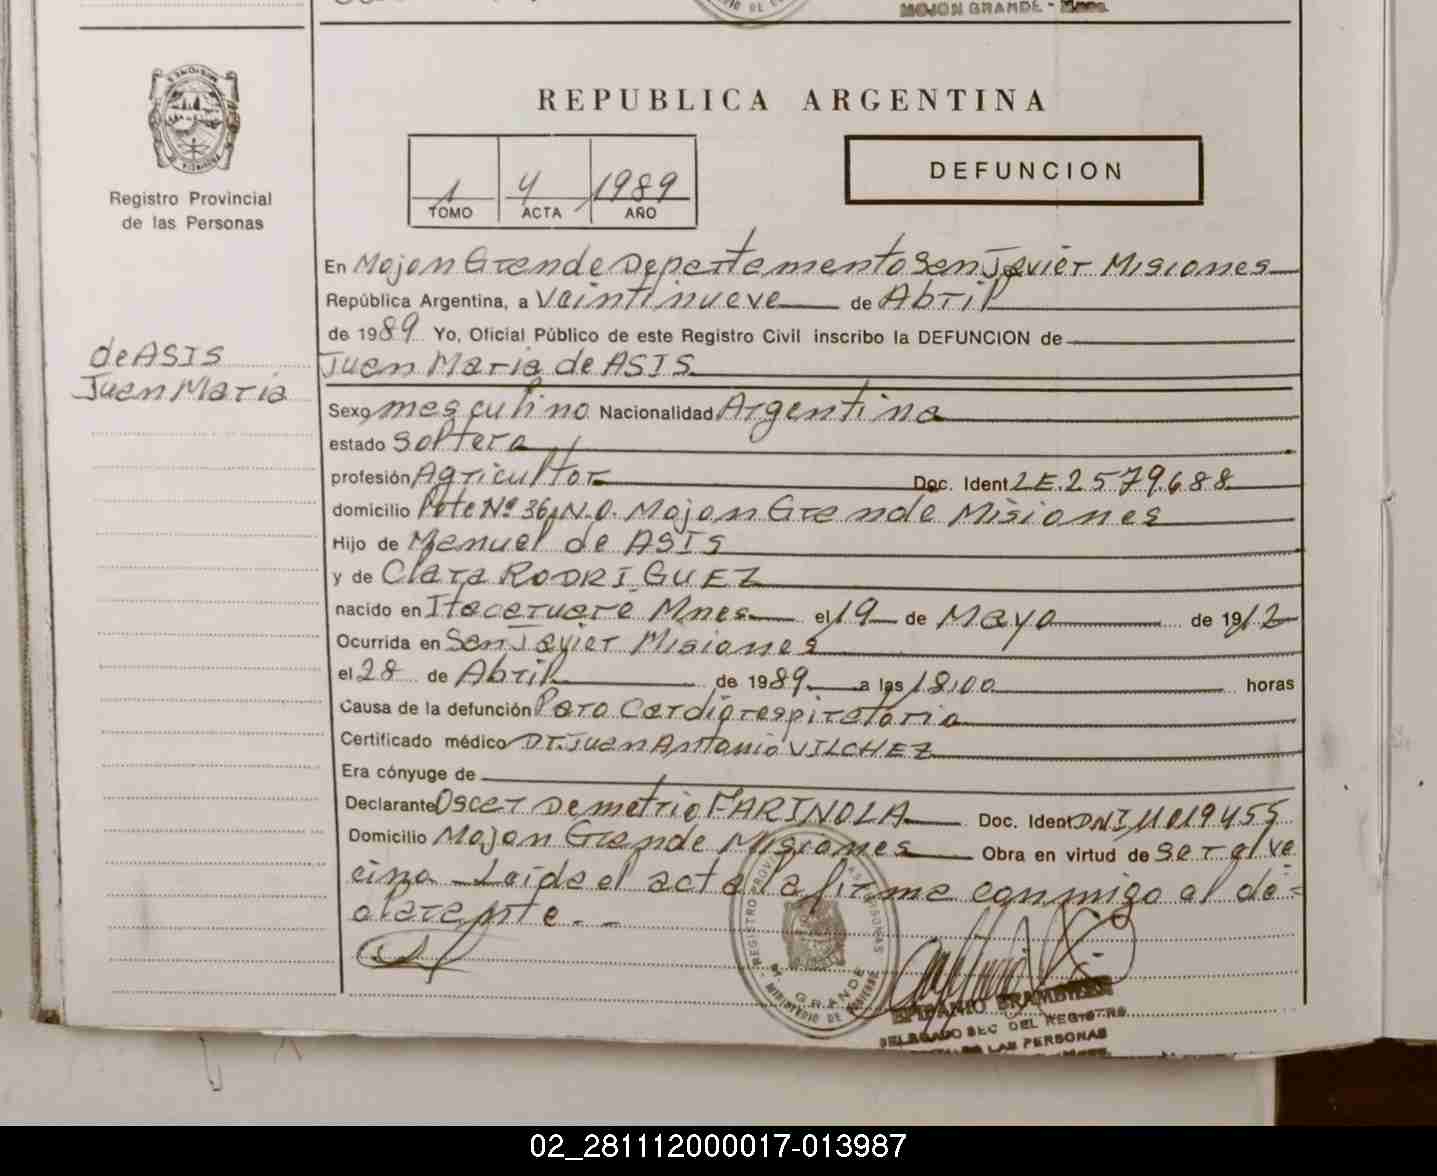 MOJON GRANDE - Mnes.
REPUBLICA ARGENTINA
Registro Provincial
de las Personas
1 4 1989
TOMO ACTA AÑO
DEFUNCION
En Mojon Grande Departamento San Javier Misiones
República Argentina, a Veintinueve de Abril
de 1989 Yo, Oficial Público de este Registro Civil inscribo la DEFUNCION de
de ASIS
Juan Maria
Juan Maria de ASIS
Sexo masculino Nacionalidad Argentina
estado Soltera
profesión Agricultor Doc. Ident LE.2579.688
domicilio Lote Nº 36 N.O. Mojon Grande Misiones
Hijo de Manuel de ASIS
y de Clara RODRIGUEZ
nacido en Itacaruaré Mnes el 19 de Mayo de 1912
Ocurrida en San Javier Misiones
el 28 de Abril de 1989 a las 18,00 horas
Causa de la defunción Paro Cardiorespiratorio
Certificado médico Dr. Juan Antonio VILCHEZ
Era cónyuge de
Declarante Oscar Demetrio FARINOLA Doc. Ident DNI 11019455
Domicilio Mojon Grande Misiones Obra en virtud de ser al ve
cino Leida el acta la firma conmigo al de=
clarante. - -
REGISTRO PROV. LAS PERSONAS
M. GRANDE
MINISTERIO DE GOBIERNO
EPIFANIO BRAMBILLA
DELEGADO SEC DEL REGISTRO
DE LAS PERSONAS
02_281112000017-013987